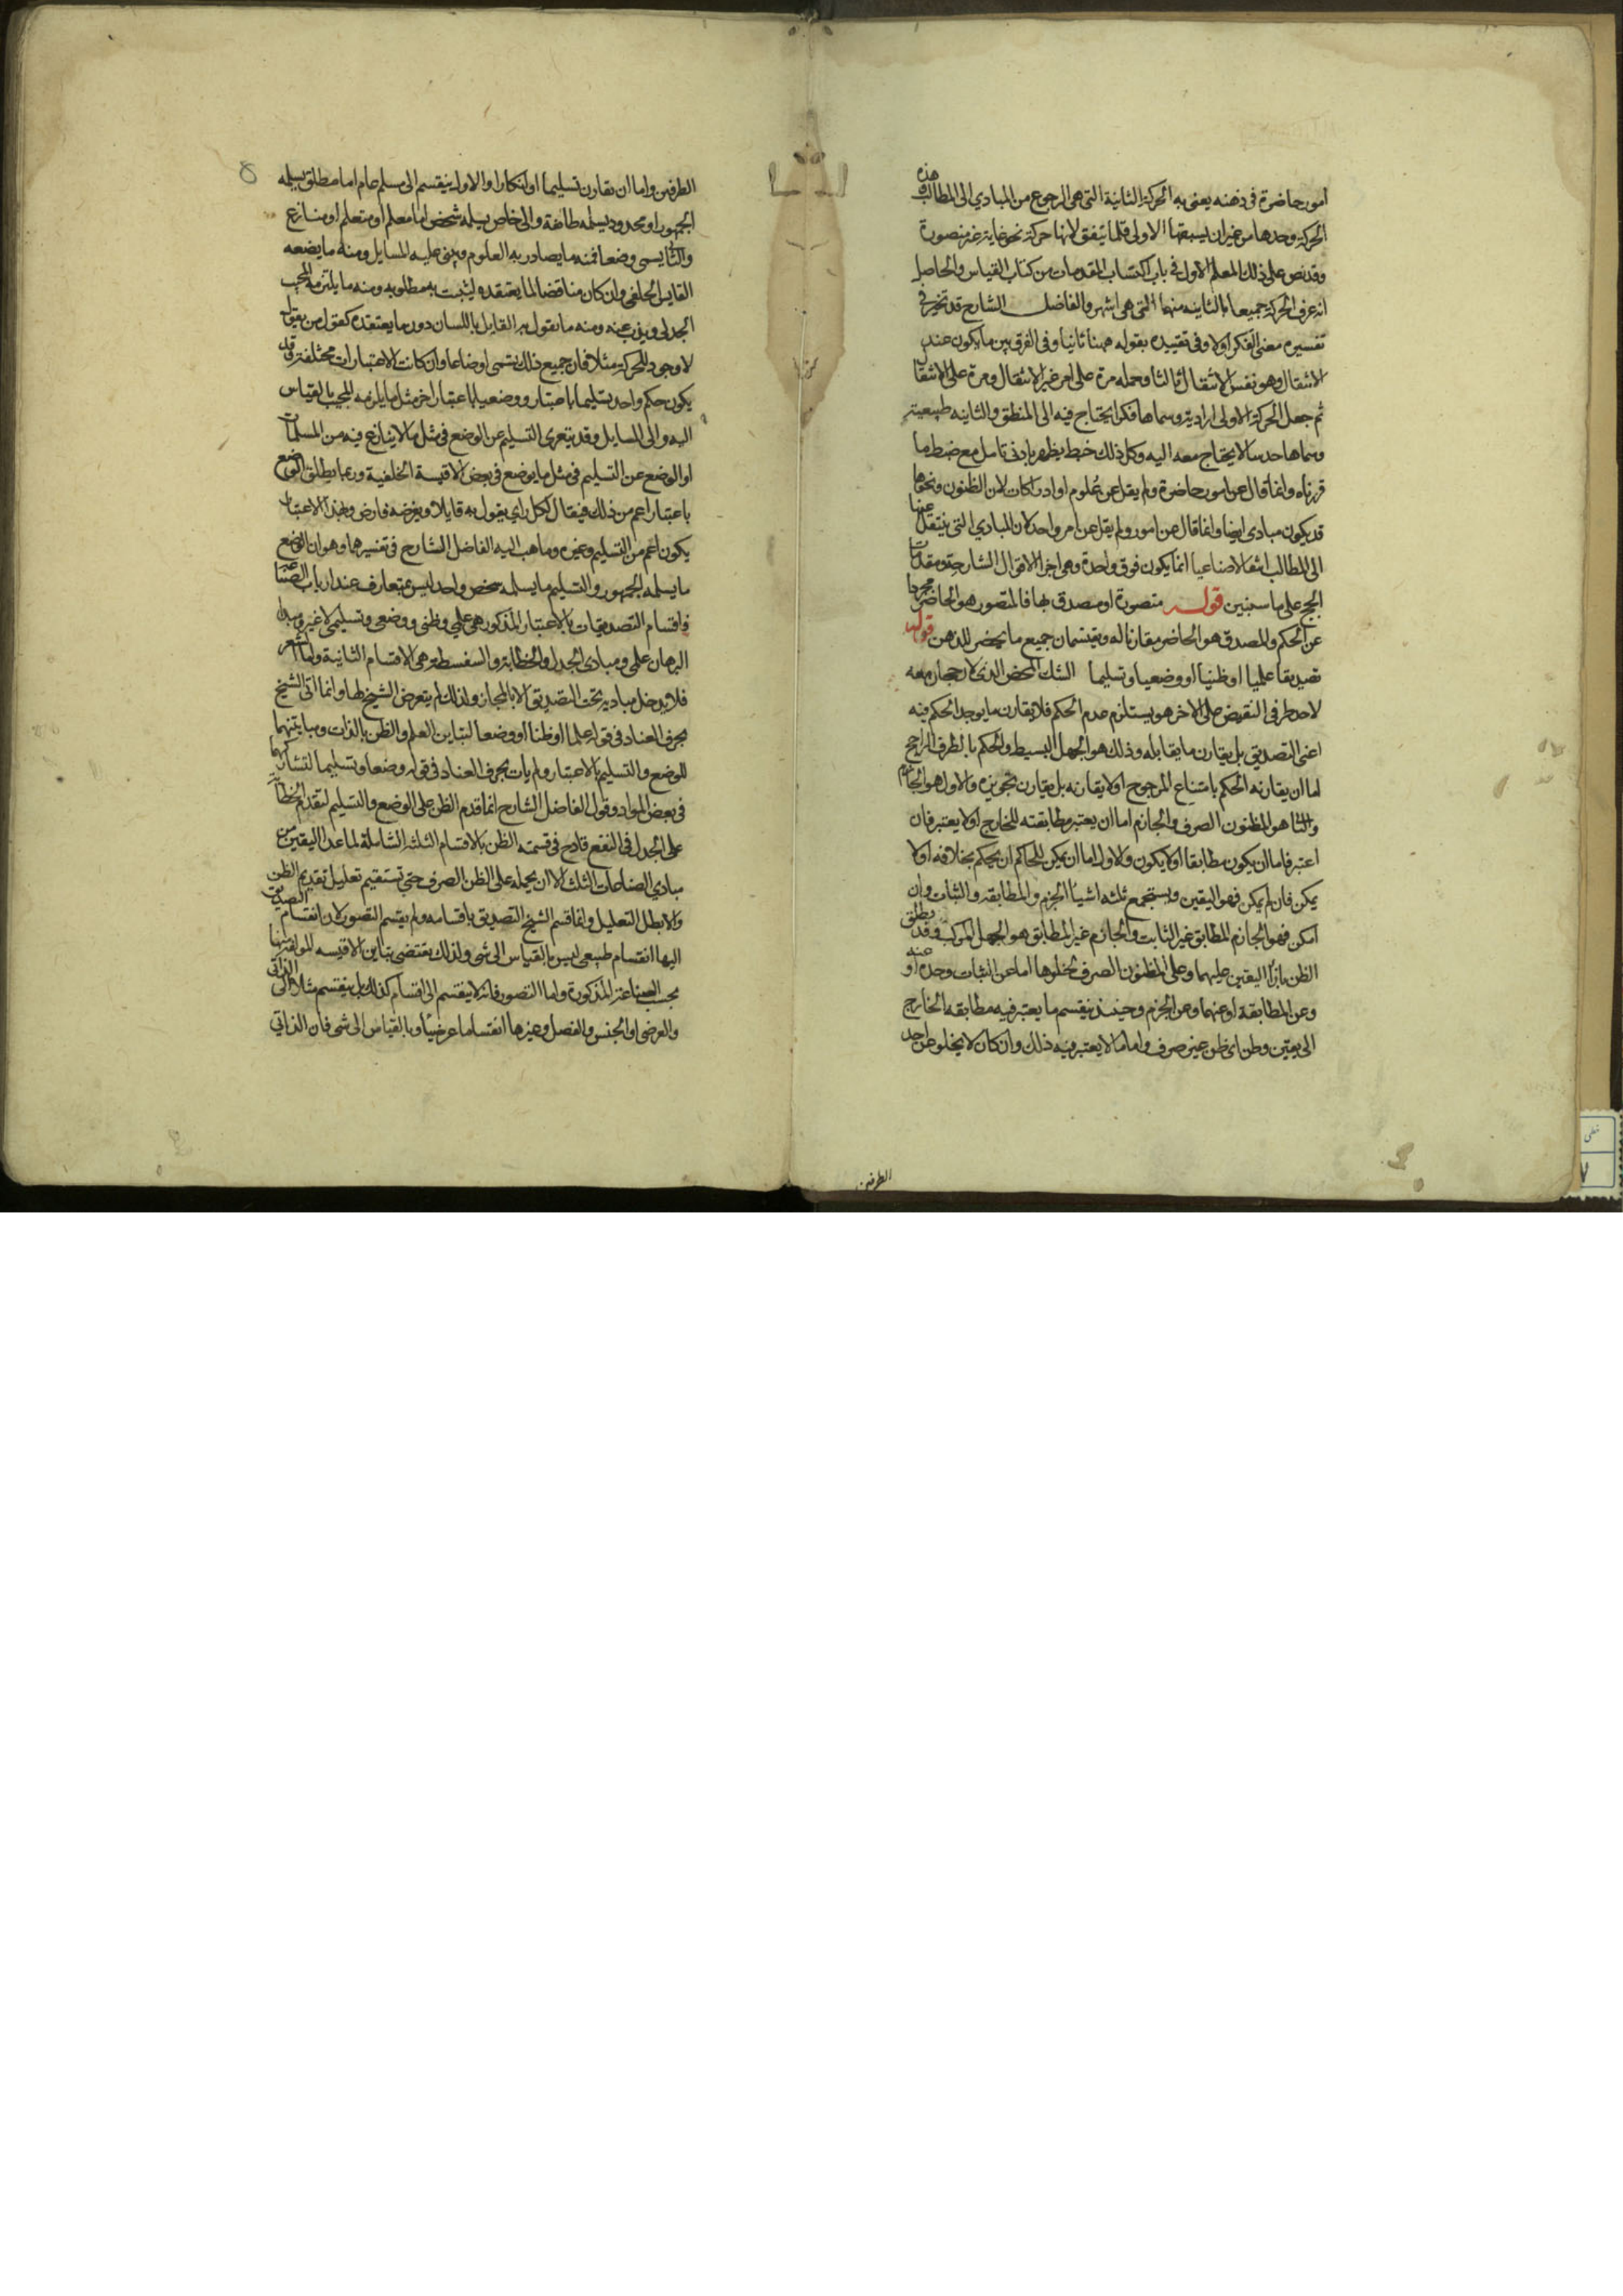 امور حاضرة فى ذهنه يعنى به الحركة الثانية التى هى الرجوع من المبادي الى المطالب وهذه
الحركة وحدها من غير ان يسبقها الاولى قلما يتفق لانها حركة نحو غاية غير متصورة
وقد نص على ذلك المعلم الاول فى باب اكتساب المقدمات من كتاب القياس والحاصل
انه عرف الحركة جميعا بالثانيه منهما التى هى اشهر والفاضل الشارح قد تحير فى
تفسيره معنى الفكر اولا وفى تقييده بقوله ههنا ثانيا وفى الفرق بين ما يكون عند
الانتقال وهو نفس الانتقال ثالثا وحمله مرة على امر غير الانتقال ومرة على الانتقال
ثم جعل الحركة الاولى ارادية وسماها فكرا يحتاج فيه الى المنطق والثانيه طبيعية
وسماها حدسا لا يحتاج معه اليه وكل ذلك خبط يظهر بادنى تامل مع ضبط ما
قررناه وانما قال عن امور حاضرة ولم يقل عن علوم او ادراكات لان الظنون ونحوها
قد يكون مبادى ايضا وانما قال عن امور ولم يقل عن امر واحد لان المبادي التى ينتقل عنها
الى المطالب انتقالا صناعيا انما يكون فوق واحدة وهى اجزا الاقوال الشارحة ومقدمات
الحجج على ما سنبين قوله متصورة او مصدق بها فالمتصور هو الحاضر مجردا
عن الحكم والمصدق هو الحاضر مقارنا له ويقتسمان جميع ما يحضر للذهن قوله
تصديقا علميا او ظنيا او وضعيا وتسليما الشك المحض الذى لا رجحان معه
لاحد طرفى النقيض على الاخر هو يستلزم عدم الحكم فلا يقارن ما يوجد الحكم فيه
اعنى التصديق بل يقارن ما يقابله وذلك هو الجهل البسيط والحكم بالطرف الراجح
اما ان يقارنه الحكم بامتناع المرجوح او لا يقارنه بل يقارن تجويزه والاول هو الجازم
والثانى هو المظنون الصرف والجازم اما ان يعتبر مطابقته للخارج او لا يعتبر فان
اعتبر فاما ان يكون مطابقا او لا يكون والاول اما ان يمكن للحاكم ان يحكم بخلافه او لا
يمكن فان لم يمكن فهو اليقين ويستجمع ثلثه اشيا الجزم والمطابقه والثبات وان
امكن فهو الجازم المطابق غير الثابت والجازم غير المطابق هو الجهل المركب وقد يطلق
الظن بازا اليقين عليهما وعلى المظنون الصرف لخلوها اما عن الثبات وحده او عنه
وعن المطابقة او عنهما وعن الجزم وحينئذ ينقسم ما يعتبر فيه مطابقه الخارج
الى يقين وظن اى ظن غير صرف واما ما لا يعتبر فيه ذلك وان كان لا يخلو عن احد
الطرفين
الطرفين واما ان يقارن تسليما او انكارا والاول ينقسم الى مسلم عام اما مطلق يسلمه
الجمهور او محدود يسلمه طائفة والى خاص يسلمه شخص اما معلم او متعلم او منازع
والثانى يسمى وضعا فمنه ما يصادر به العلوم ويبنى عليه المسايل ومنه ما يضعه
القايس الخلفى وان كان مناقضا لما يعتقده ليثبت به مطلوبه ومنه ما يلتزمه المجيب
الجدلى ويذب عنه ومنه ما يقول به القايل باللسان دون ما يعتقده كقول من يقول
لا وجود للحركة مثلا فان جميع ذلك تسمى اوضاعا وان كانت الاعتبارات مختلفة وقد
يكون حكم واحد تسليما باعتبار ووضعيا باعتبار اخر مثل ما يلزمه المجيب بالقياس
اليه والى السايل وقد يتعرى التسليم عن الوضع فى مثل ما لا ينازع فيه من المسلمات
او الوضع عن التسليم فى مثل ما يوضع فى بعض الاقيسة الخلفية وربما يطلق الوضع
باعتبار اعم من ذلك فيقال لكل راى يقول به قايل او يفرضه فارض وبهذا الاعتبار
يكون اعم من التسليم وغيره وما ذهب اليه الفاضل الشارح فى تفسيرهما وهو ان الوضع
ما يسلمه الجمهور والتسليم ما يسلمه شخص واحد ليس بمتعارف عند ارباب الصناعة
فاقسام التصديقات بالاعتبار المذكور هى علمى وظنى ووضعى وتسليمى لا غير ومبدا
البرهان علمى ومبادى الجدل والخطابة والسفسطة هى الاقسام الثانية واما الشعر
فلا يدخل مباديه تحت التصديق الا بالمجاز ولذلك لم يتعرض الشيخ لها وانما اتى الشيخ
بحرف العناد فى قوله علما او ظنا او وضعا لتباين العلم والظن بالذات ومباينتهما
للوضع والتسليم بالاعتبار ولم يات بحرف العناد فى قوله وضعا وتسليما لتشاركهما
فى بعض المواد وقول الفاضل الشارح انما قدم الظن على الوضع والتسليم لتقدم الخطابة
على الجدل فى النفع قادح فى قسمته الظن بالاقسام الثلثه الشاملة لما عدا اليقين من
مبادى الصناعات الثلث الا ان يحمله على الظن الصرف حتى تستقيم تعليل تقديم الظن
والا بطل التعليل وانما قسم الشيخ التصديق باقسامه ولم يقسم التصور لان انقسام التصديق
اليها انقسام طبيعى ليس بالقياس الى شى ولذلك يقتضى تباين الاقيسه المولفة منها
بحسب الصناعة المذكورة واما التصور فانه لا ينقسم الى اقسام كذلك بل ينقسم مثلا الى الذاتى
والعرضى او الجنس والفصل وغيرها انقساما عرضيا وبالقياس الى شى فان الذاتى